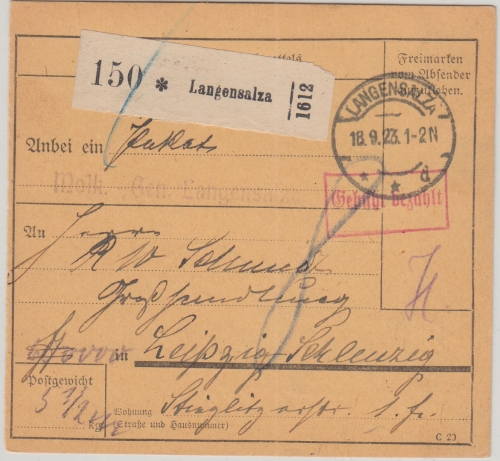 150 * Langensalza 1612
Freimarken
vom Absender
LANGENSALZA
18.9.23.1-2N
* * d
Anbei ein Paket
Molk. Gen. Langensalza
Gebühr bezahlt
An Herrn
R W Schmidt
Großhandlung
in Leipzig-Schleuzig
Postgewicht
5 1/2 kg
Wohnung
(Straße und Hausnummer)
Stieglitzerstr. 1.
C 20